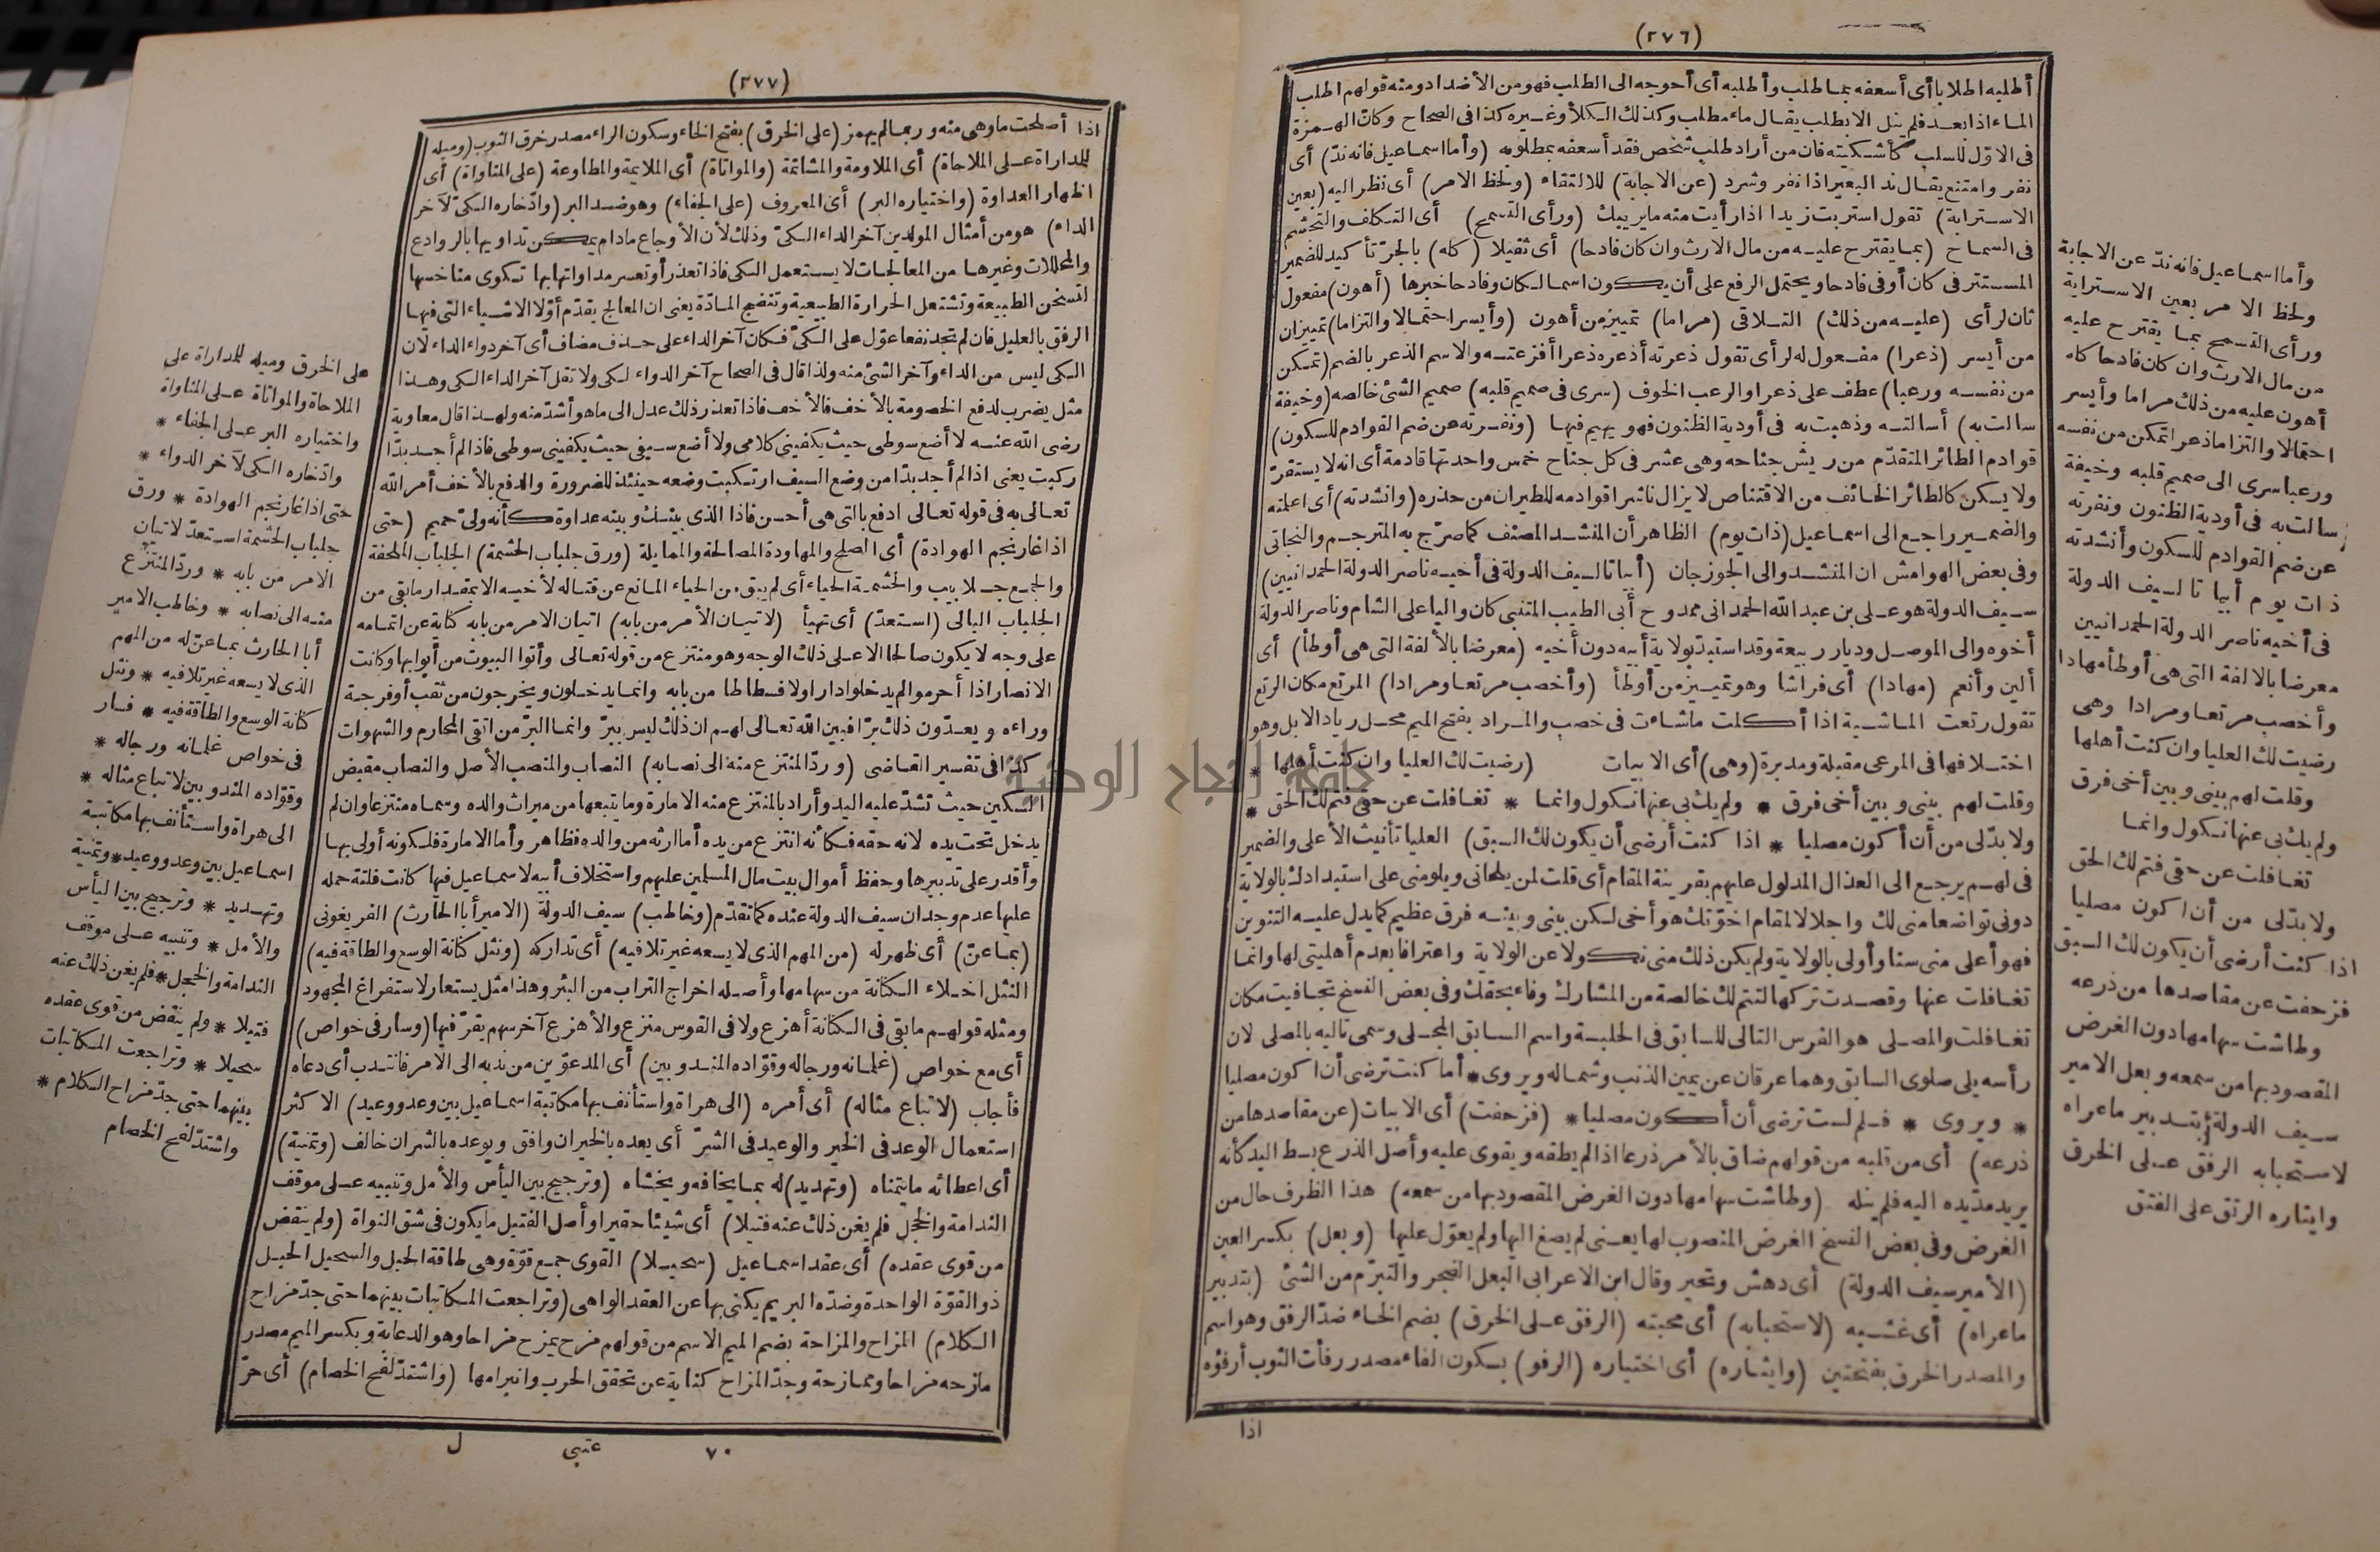 (٢٧٦)
أطلبه اطلابا أى أسعفه بما طلب وأطلبه أى أحوجه الى الطلب فهو من الأضداد ومنه قولهم اطلب
الماء اذا بعد فلم ينل الا بطلب يقال ماء مطلب وكذلك الكلأ وغيره كذا فى الصحاح وكان الهمزة
فى الاوّل للسلب كأشكيته فان من أراد طلب شخص فقد أسعفه بمطلوبه (وأما اسماعيل فانه ندّ) أى
نفر وامتنع يقال ند البعير اذا نفر وشرد (عن الاجابة) للالتقاء (ولحظ الامر) أى نظر اليه (بعين
الاسترابة) تقول استربت زيدا اذا رأيت منه ما يريبك (ورأى التسمح) أى التكلف والتجشم
فى السماح (بما يقترح عليه من مال الارث وان كان فادحا) أى ثقيلا (كله) بالجرّ تأكيد للضمير
المستتر فى كان أو فى فادحا ويحتمل الرفع على أن يكون اسما لكان وفادحا خبرها (أهون) مفعول
ثان لرأى (عليه من ذلك) التلاقى (مراما) تمييز من أهون (وأيسر احتمالا والتزاما) تمييزان
من أيسر (ذعرا) مفعول له لرأى تقول ذعرته أذعره ذعرا أفزعته والاسم الذعر بالضم (تمكن
من نفسه ورعبا) عطف على ذعرا والرعب الخوف (سرى فى صميم قلبه) صميم الشئ خالصه (وخيفة
سالت به) أسالته وذهبت به فى أودية الظنون فهو يهيم فيها (ونفرته عن ضم القوادم للسكون)
قوادم الطائر المتقدّم من ريش جناحه وهى عشر فى كل جناح خمس واحدتها قادمة أى انه لا يستقرّ
ولا يسكن كالطائر الخائف من الاقتناص لا يزال ناشرا قوادمه للطيران من حذره (وانشدته) أى اعلمته
والضمير راجع الى اسماعيل (ذات يوم) الظاهر أن المنشد المصنف كما صرّح به المترجم والنجاتى
وفى بعض الهوامش ان المنشد والى الجوزجان (أبياتا لسيف الدولة فى أخيه ناصر الدولة الحمدانيين)
سيف الدولة هو على بن عبد الله الحمدانى ممدوح أبى الطيب المتنبى كان واليا على الشام وناصر الدولة
أخوه والى الموصل وديار ربيعة وقد استبدّ بولاية أبيه دون أخيه (معرضا بالألفة التى هى أوطأ) أى
ألين وأنعم (مهادا) أى فراشا وهو تمييز من أوطأ (وأخصب مرتعا ومرادا) المرتع مكان الرتع
تقول رتعت الماشية اذا أكلت ماشاءت فى خصب والمراد بفتح الميم محل رياد الابل وهو
اختلافها فى المرعى مقبلة ومدبرة (وهى) أى الابيات (رضيت لك العليا وان كنت أهلها *
وقلت لهم بينى وبين أخى فرق * ولم يك بى عنها نكول وانما * تغافلت عن حقى فتم لك الحق *
ولا بدّلى من أن أكون مصليا * اذا كنت أرضى أن يكون لك السبق) العليا تأنيث الأعلى والضمير
فى لهم يرجع الى العذال المدلول عليهم بقرينة المقام أى قلت لمن يلحانى ويلومنى على استبدادك بالولاية
دونى تواضعا منى لك واجلالا لمقام اخوّتك هو أخى لكن بينى وبينه فرق عظيم كما يدل عليه التنوين
فهو أعلى منى سنا وأولى بالولاية ولم يكن ذلك منى نكولا عن الولاية واعترافا بعدم أهليتى لها وانما
تغافلت عنها وقصدت تركها لتتم لك خالصة من المشارك وفاء بحقك وفى بعض النسخ تجافيت مكان
تغافلت والمصلى هو الفرس التالى للسابق فى الحلبة واسم السابق المجلى وسمى تاليه بالمصلى لان
رأسه يلى صلوى السابق وهما عرقان عن يمين الذنب وشماله ويروى * أما كنت ترضى أن اكون مصليا
* ويروى * فلم لست ترضى أن أكون مصليا * (فزحفت) أى الابيات (عن مقاصدها من
ذرعه) أى من قلبه من قولهم ضاق بالأمر ذرعا اذا لم يطقه ويقوى عليه وأصل الذرع بسط اليد كأنه
يريد مدّ يده اليه فلم ينله (وطاشت سهامها دون الغرض المقصود بها من سمعه) هذا الظرف حال من
الغرض وفى بعض النسخ الغرض المنصوب لها يعنى لم يصغ اليها ولم يعوّل عليها (وبعل) بكسر العين
(الأمير سيف الدولة) أى دهش وتحير وقال ابن الاعرابى البعل الضجر والتبرّم من الشئ (بتدبير
ماعراه) أى غشيه (لاستحبابه) أى محبته (الرفق على الخرق) بضم الخاء ضدّ الرفق وهو اسم
والمصدر الخرق بفتحتين (وايثاره) أى اختياره (الرفو) بسكون الفاء مصدر رفأت الثوب أرفؤه
اذا
وأما اسماعيل فانه ندّ عن الاجابة
ولحظ الامر بعين الاسترابة
ورأى التسمح بما يقترح عليه
من مال الارث وان كان فادحا كله
أهون عليه من ذلك مراما وأيسر
احتمالا والتزاما ذعرا تمكن من نفسه
ورعبا سرى الى صميم قلبه وخيفة
سالت به فى أودية الظنون ونفرته
عن ضم القوادم للسكون وأنشدته
ذات يوم أبياتا لسيف الدولة
فى أخيه ناصر الدولة الحمدانيين
معرضا بالالفة التى هى أوطأ مهادا
وأخصب مرتعا ومرادا وهى
رضيت لك العليا وان كنت أهلها
وقلت لهم بينى وبين أخى فرق
ولم يك بى عنها نكول وانما
تغافلت عن حقى فتم لك الحق
ولا بدّلى من أن اكون مصليا
اذا كنت أرضى أن يكون لك السبق
فزحفت عن مقاصدها من ذرعه
وطاشت سهامها دون الغرض
المقصود بها من سمعه وبعل الامير
سيف الدولة بتدبير ماعراه
لاستحبابه الرفق على الخرق
وايثاره الرتق على الفتق
(٢٧٧)
اذا أصلحت ماوهى منه وربما لم يهمز (على الخرق) بفتح الخاء وسكون الراء مصدر خرق الثوب (وميله
للمداراة على الملاحاة) أى الملاومة والمشاتمة (والمواتاة) أى الملايمة والمطاوعة (على المناواة) أى
اظهار العداوة (واختياره البر) أى المعروف (على الجفاء) وهو ضد البر (وادّخاره الكىّ لآخر
الداء) هو من أمثال المولدين آخر الداء الكىّ وذلك لأن الأوجاع مادام يمكن تداويها بالروادع
والمحللات وغيرها من المعالجات لا يستعمل الكى فاذا تعذر أو تعسر مداواتها بها تكوى مناخسها
لتسخن الطبيعة وتشتعل الحرارة الطبيعية وتنضج المادّة يعنى ان المعالج يقدّم أوّلا الاشياء التى فيها
الرفق بالعليل فان لم تجد نفعا عوّل على الكىّ فكان آخر الداء على حذف مضاف أى آخر دواء الداء لان
الكى ليس من الداء وآخر الشئ منه ولذا قال فى الصحاح آخر الدواء الكى ولا تقل آخر الداء الكى وهذا
مثل يضرب لدفع الخصومة بالأخف فالأخف فاذا تعذر ذلك عدل الى ماهو أشدّ منه ولهذا قال معاوية
رضى الله عنه لا أضع سوطى حيث يكفينى كلامى ولا أضع سيفى حيث يكفينى سوطى فاذا لم أجد بدّا
ركبت يعنى اذا لم أجد بدّا من وضع السيف ارتكبت وضعه حينئذ للضرورة والدفع بالأخف أمر الله
تعالى به فى قوله تعالى ادفع بالتى هى أحسن فاذا الذى بينك وبينه عداوة كأنه ولىّ حميم (حتى
اذا غار نجم الهوادة) أى الصلح والمهاودة المصالحة والممايلة (ورق جلباب الحشمة) الجلباب الملحفة
والجمع جلابيب والحشمة الحياء أى لم يبق من الحياء المانع عن قتاله لأخيه الا بمقدار مابقى من
الجلباب البالى (استعدّ) أى تهيأ (لاتيان الأمر من بابه) اتيان الامر من بابه كناية عن اتمامه
على وجه لا يكون صالحا الا على ذلك الوجه وهو منتزع من قوله تعالى وأتوا البيوت من أبوابها وكانت
الانصار اذا أحرموا لم يدخلوا دارا ولا فسطاطا من بابه وانما يدخلون ويخرجون من ثقب أو فرجة
وراءه ويعدّون ذلك برّا فبين الله تعالى لهم ان ذلك ليس ببرّ وانما البرّ من اتقى المحارم والشهوات
كذا فى تفسير القاضى (وردّ المنتزع منه الى نصابه) النصاب والمنصب الأصل والنصاب مقبض
السكين حيث تشدّ عليه اليد وأراد بالمنتزع منه الامارة وما يتبعها من ميراث والده وسماه منتزعا وان لم
يدخل تحت يده لانه حقه فكأنه انتزع من يده أما ارثه من والده فظاهر وأما الامارة فلكونه أولى بها
وأقدر على تدبيرها وحفظ أموال بيت مال المسلمين عليهم واستخلاف أبيه لاسماعيل فيها كانت فلتة حمله
عليها عدم وجدان سيف الدولة عنده كما تقدّم (وخاطب) سيف الدولة (الامير أبا الحارث) الفريغونى
(بما عنّ) أى ظهر له (من المهم الذى لا يسعه غير تلافيه) أى تداركه (ونثل كنانة الوسع والطاقة فيه)
النثل اخلاء الكنانة من سهامها وأصله اخراج التراب من البئر وهذا مثل يستعار لاستفراغ المجهود
ومثله قولهم ما بقى فى الكنانة أهزع ولا فى القوس منزع والأهزع آخر سهم يقرّ فيها (وسار فى خواص)
أى مع خواص (غلمانه ورجاله وقوّاده المندوبين) أى المدعوّين من ندبه الى الامر فانتدب أى دعاه
فأجاب (لاتباع مثاله) أى أمره (الى هراة واستأنف بها مكاتبة اسماعيل بين وعد ووعيد) الاكثر
استعمال الوعد فى الخير والوعيد فى الشرّ أى يعده بالخير ان وافق ويوعده بالشر ان خالف (وتمنية)
أى اعطائه مايتمناه (وتهديد) له بما يخافه ويخشاه (وترجيح بين اليأس والأمل وتنبيه على موقف
الندامة والخجل فلم يغن ذلك عنه فتيلا) أى شيئا حقيرا وأصل الفتيل ما يكون فى شق النواة (ولم ينقض
من قوى عقده) أى عقد اسماعيل (سحيلا) القوى جمع قوّة وهى طاقة الحبل والسحيل الحبل
ذو القوّة الواحدة وضدّه البريم يكنى بها عن العقد الواهى (وتراجعت المكاتبات بينهما حتى جدّ مزاح
الكلام) المزاح والمزاحة بضم الميم الاسم من قولهم مزح يمزح مزاحا وهو الدعابة وبكسر الميم مصدر
مازحه مزاحا وممازحة وجدّ المزاح كناية عن تحقق الحرب وانبرامها (واشتدّ لفح الخصام) أى حرّ
٧٠ عتبى ل
على الخرق وميله للمداراة على
الملاحاة والمواتاة على المناواة
واختياره البر على الجفاء *
وادّخاره الكى لآخر الدواء *
حتى اذا غار نجم الهوادة * ورق
جلباب الحشمة استعدّ لاتيان
الامر من بابه * وردّ المنتزع
منه الى نصابه * وخاطب الامير
أبا الحارث بما عنّ له من المهم
الذى لا يسعه غير تلافيه * ونثل
كنانة الوسع والطاقة فيه * فسار
فى خواص غلمانه ورجاله *
وقوّاده المندوبين لاتباع مثاله *
الى هراة واستأنف بها مكاتبة
اسماعيل بين وعد ووعيد * وتمنية
وتهديد * وترجيح بين اليأس
والأمل * وتنبيه على موقف
الندامة والخجل * فلم يغن ذلك عنه
فتيلا * ولم ينقض من قوى عقده
سحيلا * وتراجعت المكاتبات
بينهما حتى جدّ مزاح الكلام *
واشتدّ لفح الخصام
جامعة النجاح الوطنية